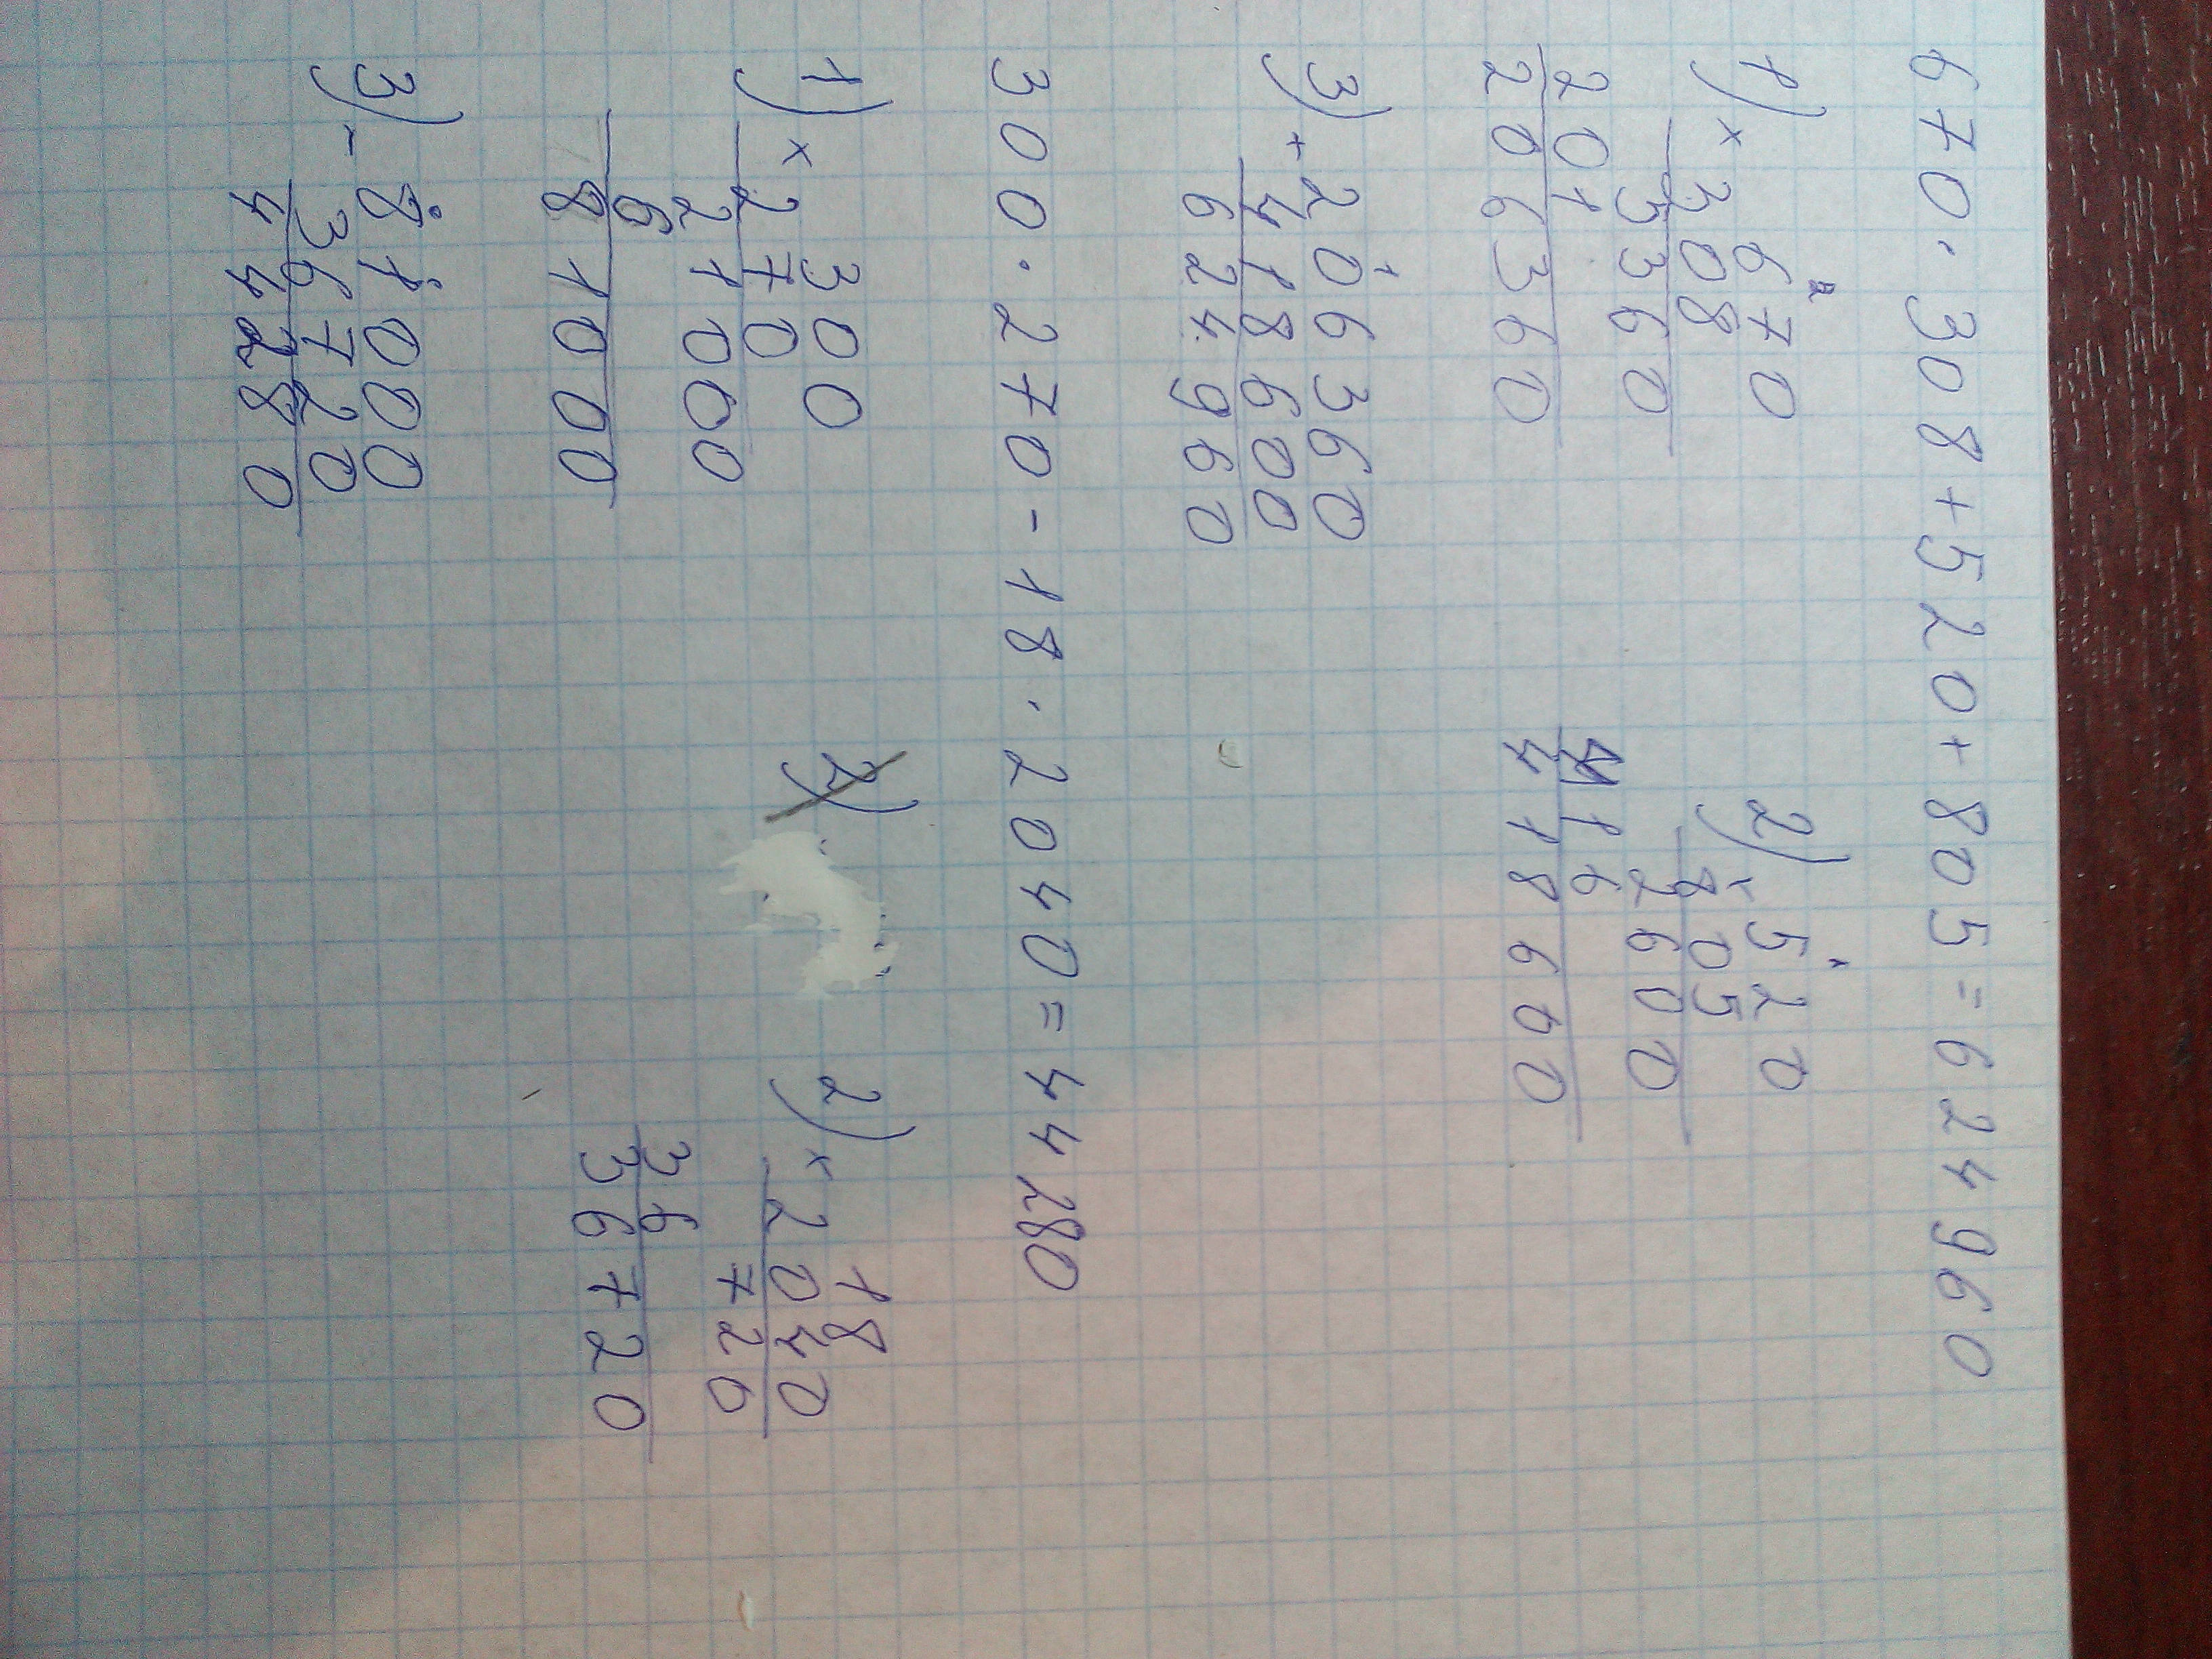 670·308+520+805=624960
1) × 670 2
308
5360
201
206360
2) × 520 1
805
2600
416
418600
3) + 206360 1
418600
624960
300·270-18·2040=44280
1) × 300
270
21000
6
81000
2)
2) × 18
2040
720
36
36720
3) - 81000
36720
44280